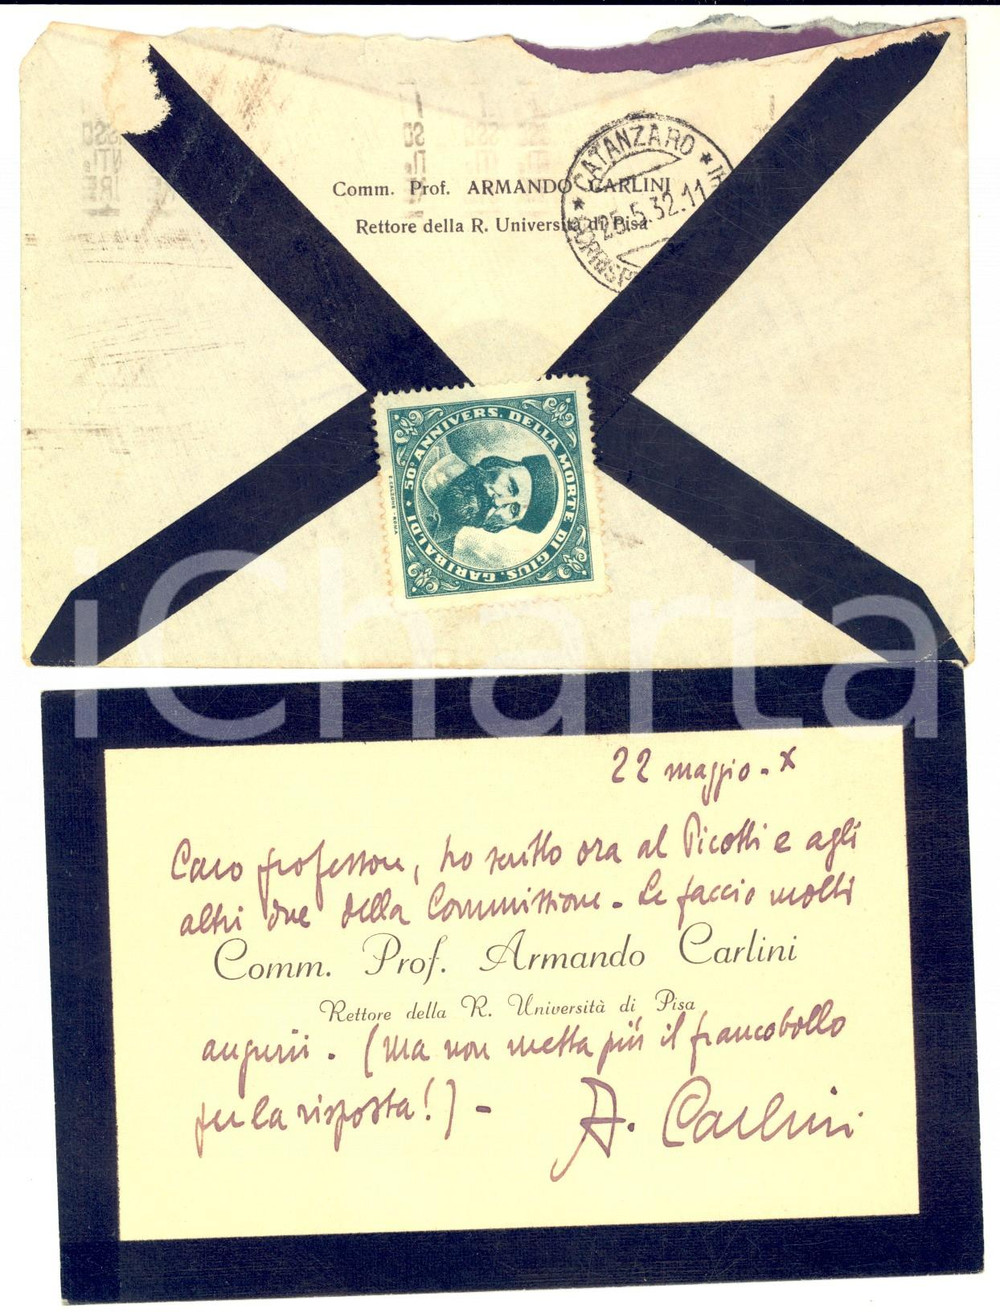 Comm. Prof. ARMANDO CARLINI
Rettore della R. Università di Pisa
CATANZARO
25.5.32.11
50° ANNIVERS. DELLA MORTE DI GIUS. GARIBALDI
iCharta
22 maggio - X
Caro professore, ho scritto ora al Picotti e agli
altri due della Commissione - Le faccio molti
Comm. Prof. Armando Carlini
Rettore della R. Università di Pisa
augurii. (Ma non metta più il francobollo
per la risposta!) -
A. Carlini